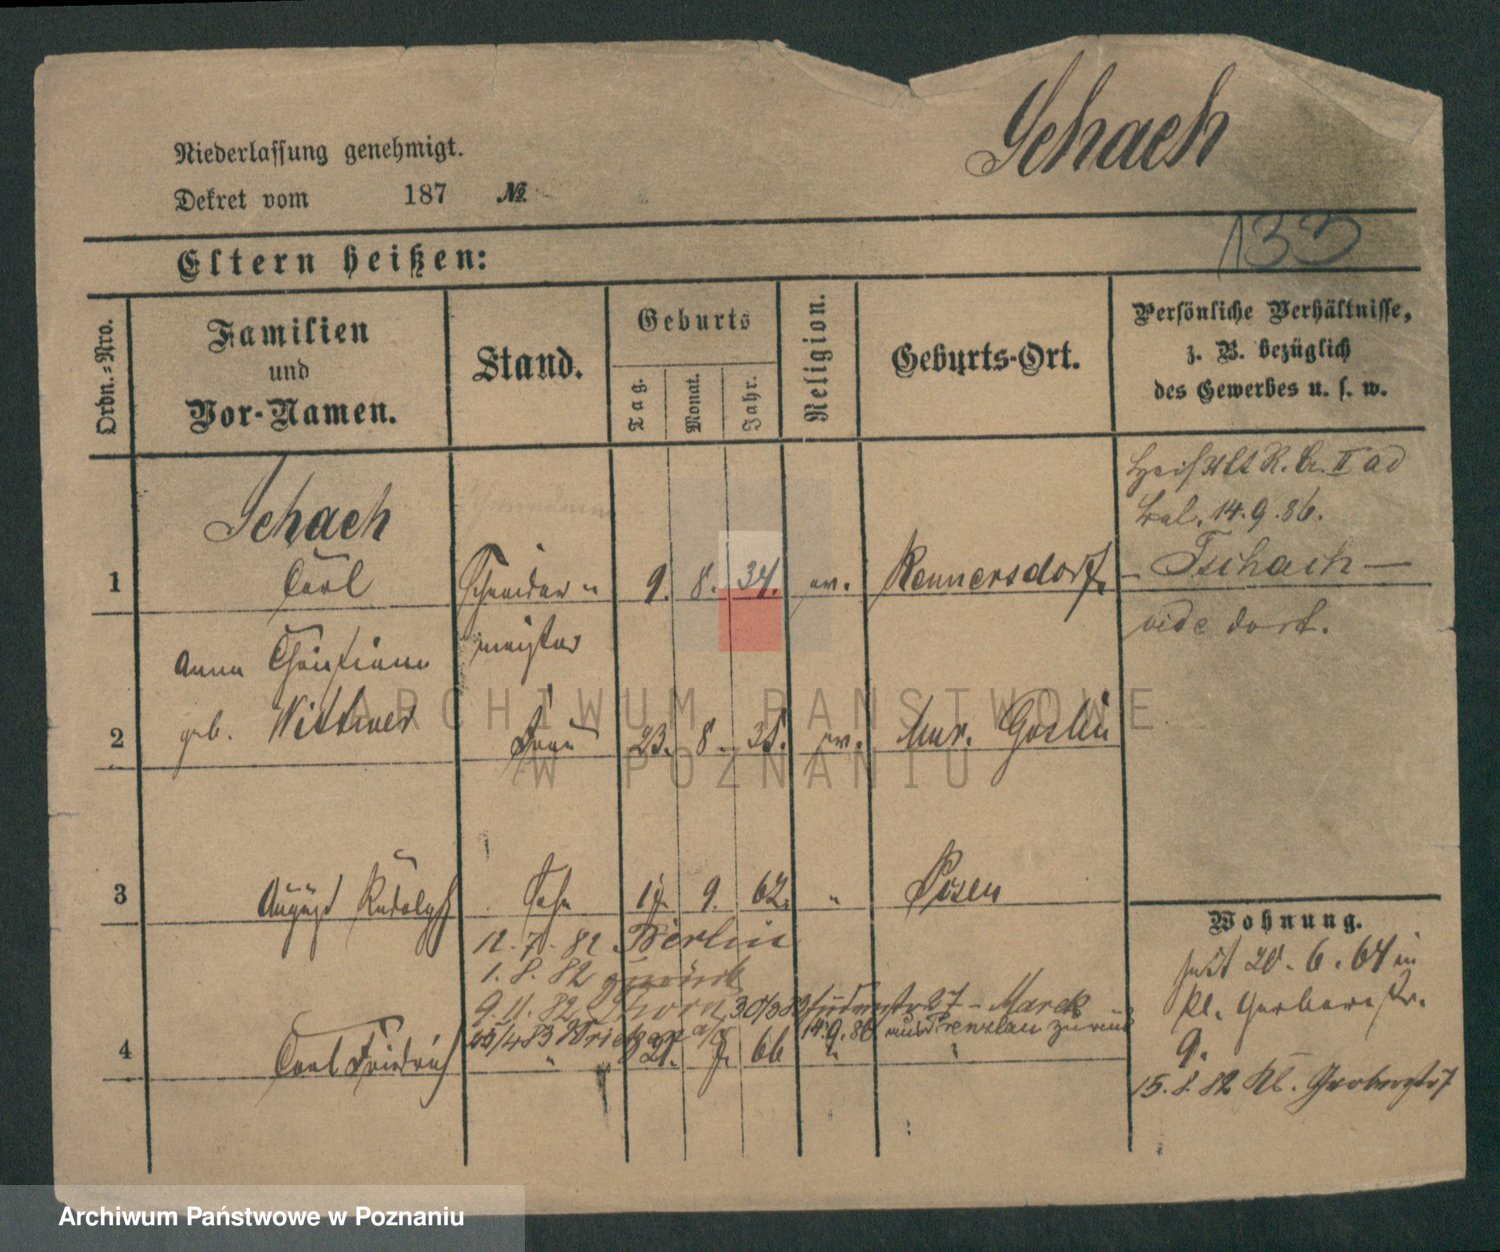 Schach
Niederlassung genehmigt.
Dekret vom 187 №
133
Eltern heißen:
Ordn.-Nro.
Familien
und
Vor-Namen.
Stand.
Geburts
Tag.
Monat.
Jahr.
Religion.
Geburts-Ort.
Persönliche Verhältnisse,
z. B. bezüglich
des Gewerbes u. s. w.
heißt lt R. II ad
14.9.86.
— Tschach —
vide dort.
Schach
1 Carl Schneider 9. 8. 34. ev. Rennersdorf
meister
Anna Christiane
2 geb. Wittwer Frau 23. 8. ev. Mur. Goslin
3 August Rudolph Sohn 17. 9. 62. " Posen
12.7.82 Berlin
1.8.82 zurück
9.11.82 Thorn
25/4 83 Wriezen a/o
14.9.86 aus Prenzlau zurück
4 Carl Friedrich " 21. 66 " "
Wohnung.
seit 20.6.64 in
Kl. Gerberstr.
9.
15.8.82 Kl. Gerberstr 7
ARCHIWUM PAŃSTWOWE
W POZNANIU
Archiwum Państwowe w Poznaniu